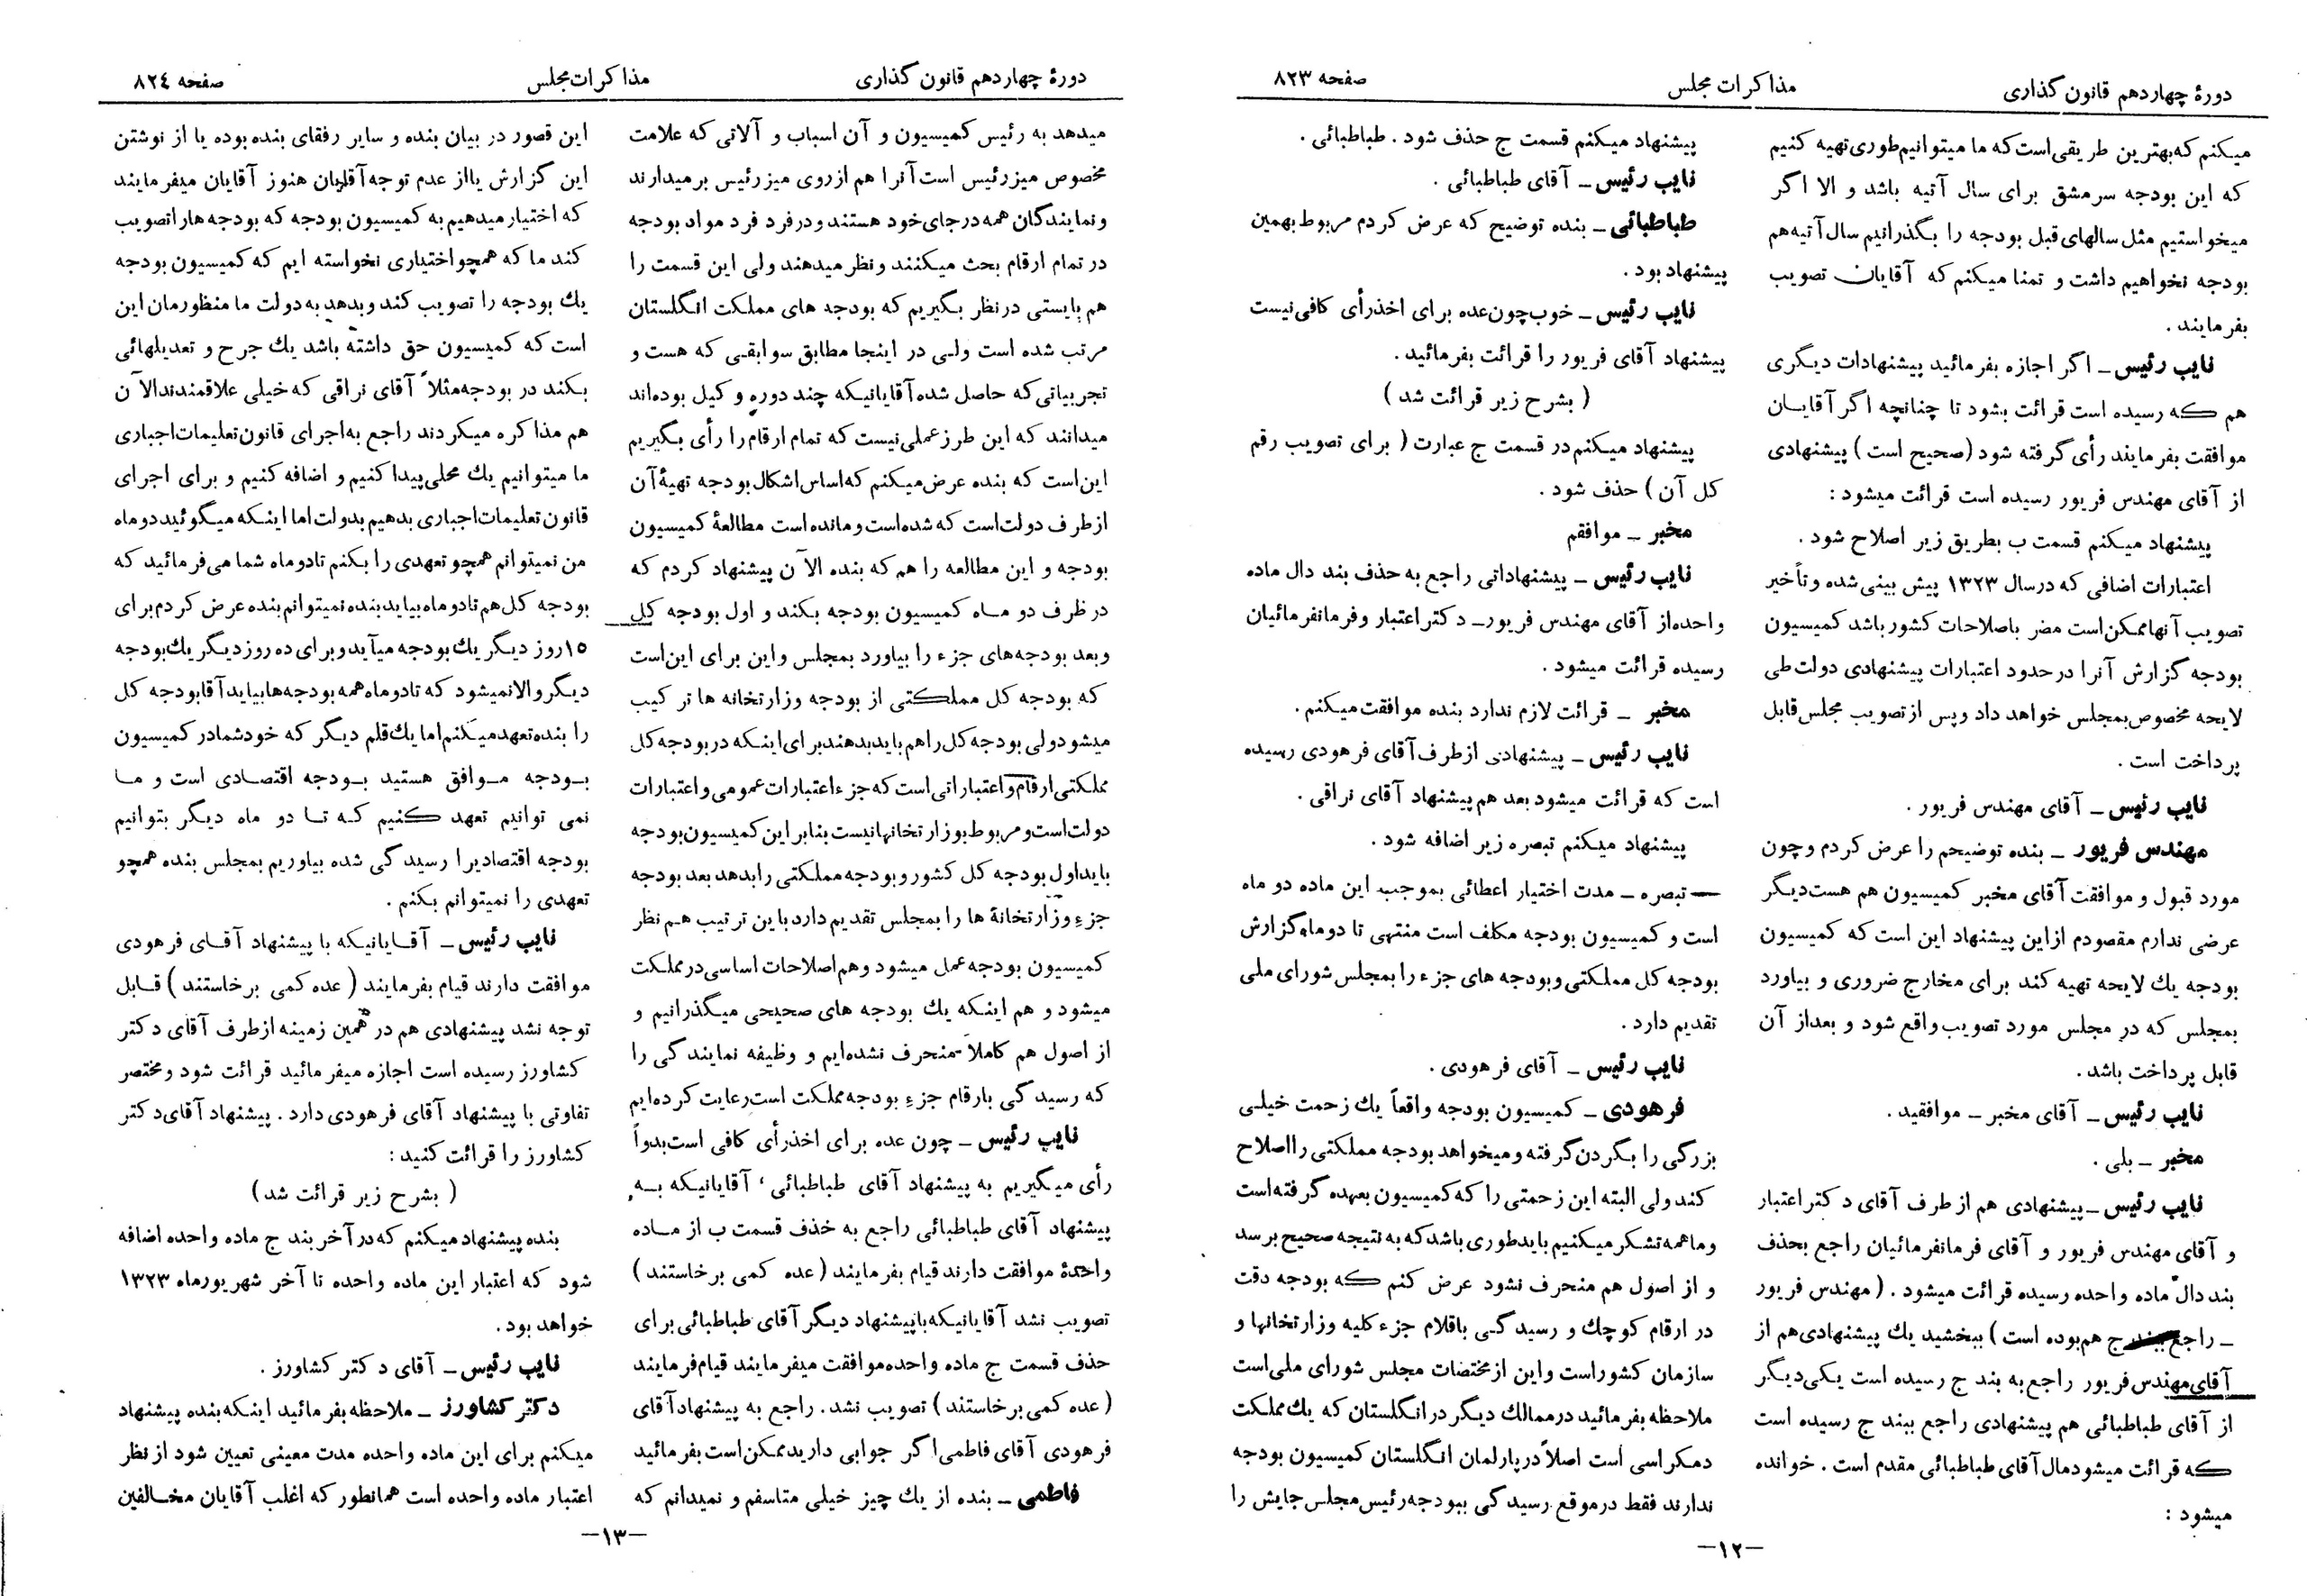 دورهٔ چهاردهم قانون گذاری
مذاکرات مجلس
صفحه ۸۲۳
میکنم که بهترین طریقی است که ما میتوانیم طوری تهیه کنیم
که این بودجه سرمشق برای سال آتیه باشد و الا اگر
میخواستیم مثل سالهای قبل بودجه را بگذرانیم سال آتیه هم
بودجه نخواهیم داشت و تمنا میکنم که آقایان تصویب
بفرمایند.
نایب رئیس ـ اگر اجازه بفرمائید پیشنهادات دیگری
هم که رسیده است قرائت بشود تا چنانچه اگر آقایان
موافقت بفرمایند رأی گرفته شود (صحیح است) پیشنهادی
از آقای مهندس فریور رسیده است قرائت میشود:
پیشنهاد میکنم قسمت ب بطریق زیر اصلاح شود.
اعتبارات اضافی که در سال ۱۳۲۳ پیش بینی شده و تأخیر
تصویب آنها ممکن است مضر باصلاحات کشور باشد کمیسیون
بودجه گزارش آنرا در حدود اعتبارات پیشنهادی دولت طی
لایحه مخصوص بمجلس خواهد داد و پس از تصویب مجلس قابل
پرداخت است.
نایب رئیس ـ آقای مهندس فریور.
مهندس فریور ـ بنده توضیحم را عرض کردم و چون
مورد قبول و موافقت آقای مخبر کمیسیون هم هست دیگر
عرضی ندارم مقصودم از این پیشنهاد این است که کمیسیون
بودجه یك لایحه تهیه کند برای مخارج ضروری و بیاورد
بمجلس که در مجلس مورد تصویب واقع شود و بعد از آن
قابل پرداخت باشد.
نایب رئیس ـ آقای مخبر ـ موافقید.
مخبر ـ بلی.
نایب رئیس ـ پیشنهادی هم از طرف آقای دکتر اعتبار
و آقای مهندس فریور و آقای فرمانفرمائیان راجع بحذف
بند دال ماده واحده رسیده قرائت میشود. (مهندس فریور
ـ راجع ببند ج هم بوده است) ببخشید یك پیشنهادی هم از
آقای مهندس فریور راجع به بند ج رسیده است یکی دیگر
از آقای طباطبائی هم پیشنهادی راجع ببند ج رسیده است
که قرائت میشود مال آقای طباطبائی مقدم است. خوانده
میشود:
پیشنهاد میکنم قسمت ج حذف شود. طباطبائی.
نایب رئیس ـ آقای طباطبائی.
طباطبائی ـ بنده توضیح که عرض کردم مربوط بهمین
پیشنهاد بود.
نایب رئیس ـ خوب چون عده برای اخذ رأی کافی نیست
پیشنهاد آقای فریور را قرائت بفرمائید.
(بشرح زیر قرائت شد)
پیشنهاد میکنم در قسمت ج عبارت (برای تصویب رقم
کل آن) حذف شود.
مخبر ـ موافقم
نایب رئیس ـ پیشنهاداتی راجع به حذف بند دال ماده
واحده از آقای مهندس فریور ـ دکتر اعتبار و فرمانفرمائیان
رسیده قرائت میشود.
مخبر ـ قرائت لازم ندارد بنده موافقت میکنم.
نایب رئیس ـ پیشنهادی از طرف آقای فرهودی رسیده
است که قرائت میشود بعد هم پیشنهاد آقای نراقی.
پیشنهاد میکنم تبصره زیر اضافه شود.
ـ تبصره ـ مدت اختیار اعطائی بموجب این ماده دو ماه
است و کمیسیون بودجه مکلف است منتهی تا دو ماه گزارش
بودجه کل مملکتی و بودجه های جزء را بمجلس شورای ملی
تقدیم دارد.
نایب رئیس ـ آقای فرهودی.
فرهودی ـ کمیسیون بودجه واقعاً یك زحمت خیلی
بزرگی را بگردن گرفته و میخواهد بودجه مملکتی را اصلاح
کند ولی البته این زحمتی را که کمیسیون بعهده گرفته است
و ما همه تشکر میکنیم باید طوری باشد که به نتیجه صحیح برسد
و از اصول هم منحرف نشود عرض کنم که بودجه دقت
در ارقام کوچك و رسیدگی باقلام جزء کلیه وزارتخانها و
سازمان کشور است و این از مختصات مجلس شورای ملی است
ملاحظه بفرمائید در ممالك دیگر در انگلستان که یك مملکت
دمکراسی است اصلاً در پارلمان انگلستان کمیسیون بودجه
ندارند فقط در موقع رسیدگی ببودجه رئیس مجلس جایش را
ـ۱۲ـ
دورهٔ چهاردهم قانون گذاری
مذاکرات مجلس
صفحه ۸۲۴
میدهد به رئیس کمیسیون و آن اسباب و آلاتی که علامت
مخصوص میز رئیس است آنرا هم از روی میز رئیس برمیدارند
و نمایندگان همه در جای خود هستند و در فرد فرد مواد بودجه
در تمام ارقام بحث میکنند و نظر میدهند ولی این قسمت را
هم بایستی در نظر بگیریم که بودجه های مملکت انگلستان
مرتب شده است ولی در اینجا مطابق سوابقی که هست و
تجربیاتی که حاصل شده آقایانیکه چند دوره وکیل بوده‌اند
میدانند که این طرز عملی نیست که تمام ارقام را رأی بگیریم
این است که بنده عرض میکنم که اساس اشکال بودجه تهیهٔ آن
از طرف دولت است که شده است و مانده است مطالعهٔ کمیسیون
بودجه و این مطالعه را هم که بنده الآن پیشنهاد کردم که
در ظرف دو ماه کمیسیون بودجه بکند و اول بودجه کل
و بعد بودجه‌های جزء را بیاورد بمجلس و این برای این است
که بودجه کل مملکتی از بودجه وزارتخانه ها ترکیب
میشود ولی بودجه کل را هم باید بدهند برای اینکه در بودجه کل
مملکتی ارقام و اعتباراتی است که جزء اعتبارات عمومی و اعتبارات
دولت است و مربوط بوزارتخانها نیست بنابر این کمیسیون بودجه
باید اول بودجه کل کشور و بودجه مملکتی را بدهد بعد بودجه
جزء وزارتخانهٔ ها را بمجلس تقدیم دارد باین ترتیب هم نظر
کمیسیون بودجه عمل میشود و هم اصلاحات اساسی در مملکت
میشود و هم اینکه یك بودجه های صحیحی میگذرانیم و
از اصول هم کاملاً منحرف نشده‌ایم و وظیفه نمایندگی را
که رسیدگی بارقام جزء بودجه مملکت است رعایت کرده‌ایم
نایب رئیس ـ چون عده برای اخذ رأی کافی است بدواً
رأی میگیریم به پیشنهاد آقای طباطبائی، آقایانیکه به
پیشنهاد آقای طباطبائی راجع به خذف قسمت ب از ماده
واحدهٔ موافقت دارند قیام بفرمایند (عده کمی برخاستند)
تصویب نشد آقایانیکه با پیشنهاد دیگر آقای طباطبائی برای
حذف قسمت ج ماده واحده موافقت میفرمایند قیام فرمایند
(عده کمی برخاستند) تصویب نشد. راجع به پیشنهاد آقای
فرهودی آقای فاطمی اگر جوابی دارید ممکن است بفرمائید
فاطمی ـ بنده از یك چیز خیلی متاسفم و نمیدانم که
این قصور در بیان بنده و سایر رفقای بنده بوده یا از نوشتن
این گزارش یا از عدم توجه آقایان هنوز آقایان میفرمایند
که اختیار میدهیم به کمیسیون بودجه که بودجه ها را تصویب
کند ما که همچو اختیاری نخواسته ایم که کمیسیون بودجه
یك بودجه را تصویب کند و بدهد به دولت ما منظورمان این
است که کمیسیون حق داشته باشد یك جرح و تعدیلهائی
بکند در بودجه مثلاً آقای نراقی که خیلی علاقمندند الآن
هم مذاکره میکردند راجع به اجرای قانون تعلیمات اجباری
ما میتوانیم یك محلی پیدا کنیم و اضافه کنیم و برای اجرای
قانون تعلیمات اجباری بدهیم بدولت اما اینکه میگوئید دو ماه
من نمیتوانم همچو تعهدی را بکنم تا دو ماه شما می‌فرمائید که
بودجه کل هم تا دو ماه بیاید بنده نمیتوانم بنده عرض کردم برای
۱۵ روز دیگر یك بودجه میآید و برای ده روز دیگر یك بودجه
دیگر و الا نمیشود که تا دو ماه همه بودجه‌ها بیاید آقا بودجه کل
را بنده تعهد میکنم اما یك قلم دیگر که خود شما در کمیسیون
بودجه موافق هستید بودجه اقتصادی است و ما
نمی توانیم تعهد کنیم که تا دو ماه دیگر بتوانیم
بودجه اقتصادیرا رسیدگی شده بیاوریم بمجلس بنده همچو
تعهدی را نمیتوانم بکنم.
نایب رئیس ـ آقایانیکه با پیشنهاد آقای فرهودی
موافقت دارند قیام بفرمایند (عده کمی برخاستند) قابل
توجه نشد پیشنهادی هم در همین زمینه از طرف آقای دکتر
کشاورز رسیده است اجازه میفرمائید قرائت شود و مختصر
تفاوتی با پیشنهاد آقای فرهودی دارد. پیشنهاد آقای دکتر
کشاورز را قرائت کنید:
(بشرح زیر قرائت شد)
بنده پیشنهاد میکنم که در آخر بند ج ماده واحده اضافه
شود که اعتبار این ماده واحده تا آخر شهریور ماه ۱۳۲۳
خواهد بود.
نایب رئیس ـ آقای دکتر کشاورز.
دکتر کشاورز ـ ملاحظه بفرمائید اینکه بنده پیشنهاد
میکنم برای این ماده واحده مدت معینی تعیین شود از نظر
اعتبار ماده واحده است همانطور که اغلب آقایان مخالفین
ـ۱۳ـ